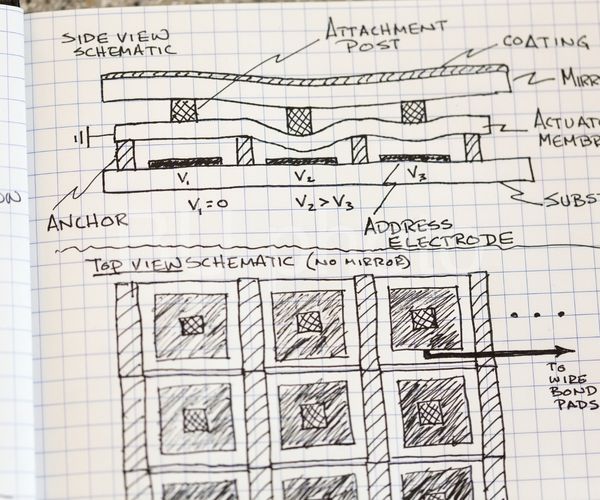 SIDE VIEW
SCHEMATIC
ATTACHMENT
POST
COATING
MIRR
ACTUAT
MEMBR
V₁
V₂
V₃
V₁=0
V₂>V₃
SUBST
ANCHOR
ADDRESS
ELECTRODE
TOP VIEW SCHEMATIC (NO MIRROR)
TO
WIRE
BOND
PADS
ON